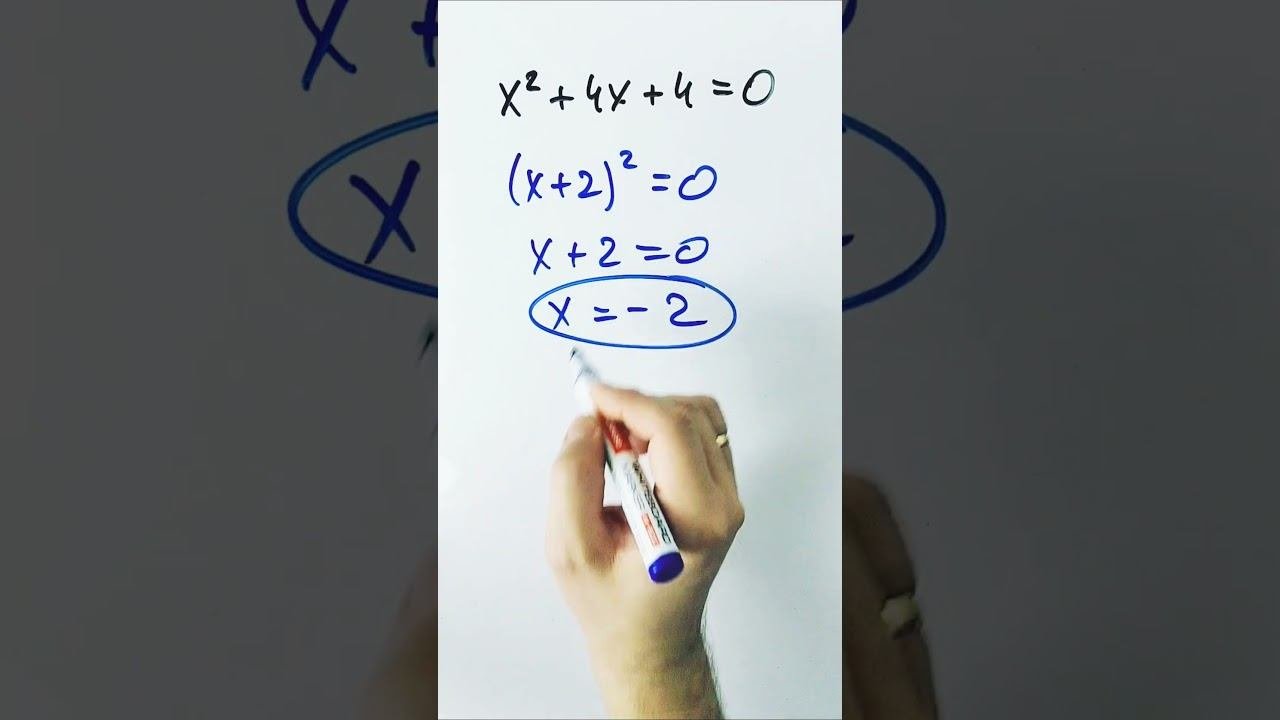 x² + 4x + 4 = 0
(x+2)² = 0
x + 2 = 0
x = - 2